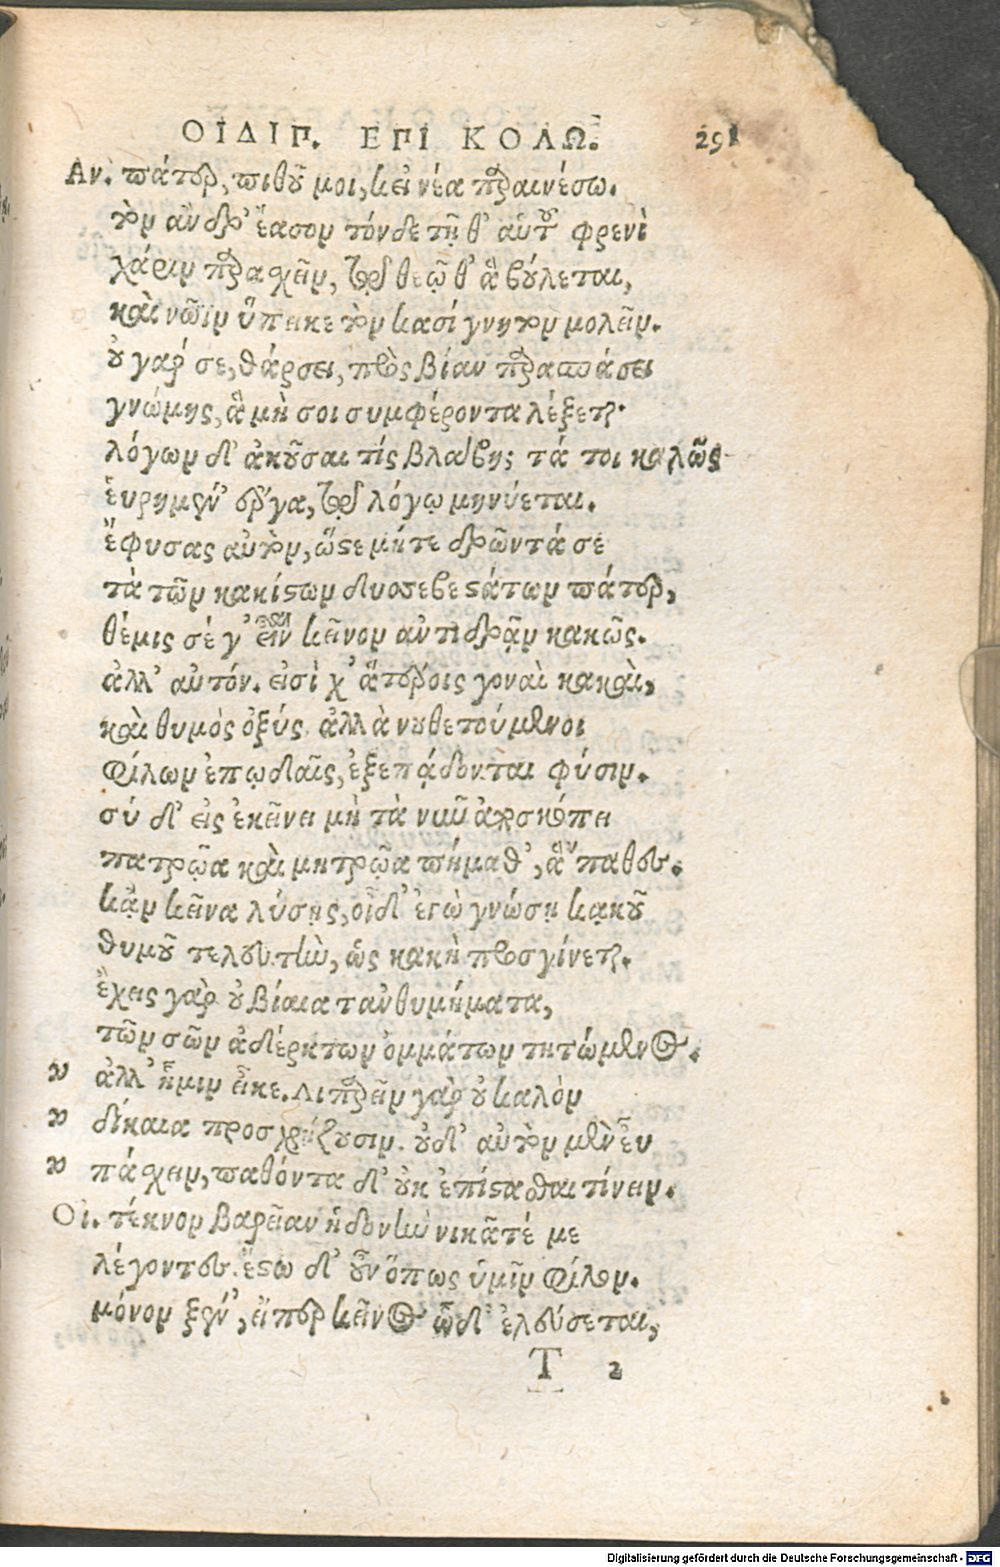 ΟΙΔΙΠ. ΕΠΙ ΚΟΛΩ. 291
Αν. πάτερ, πιθοῦ μοι, κεἰ νέα παραινέσω.
τὸν ἄνδρ' ἔασον τόνδε τῇ θ' αὑτοῦ φρενὶ
χάριν παραχεῖν, τῷ θεῷ θ' ἃ βούλεται,
καὶ νῶϊν ὕπεικε τὸν κασίγνητον μολεῖν.
οὐ γάρ σε, θάρσει, πρὸς βίαν παρασπάσει
γνώμης, ἃ μὴ σοι συμφέροντα λέξεται.
λόγων δ' ἀκοῦσαι τίς βλάβη; τά τοι καλῶς
εὑρημέν' ἔργα, τῷ λόγῳ μηνύεται.
ἔφυσας αὐτὸν, ὥστε μήτε δρῶντά σε
τὰ τῶν κακίστων δυσσεβεστάτων πάτερ,
θέμις σέ γ' εἶναι κεῖνον ἀντιδρᾷν κακῶς.
ἀλλ' αὐτόν. εἰσὶ χ' ἁτέροις γοναὶ κακαὶ,
καὶ θυμὸς ὀξύς. ἀλλὰ νουθετούμενοι
φίλων ἐπῳδαῖς, ἐξεπᾴδονται φύσιν.
σύ δ' εἰς ἐκεῖνα μὴ τὰ νῦν ἀποσκόπει
πατρῷα καὶ μητρῷα πήμαθ', ἃ 'παθες.
κᾂν κεῖνα λύσῃς, οἶδ' ἐγὼ γνώσῃ κακοῦ
θυμοῦ τελευτὴν, ὡς κακὴ προσγίνεται.
ἔχεις γὰρ οὐ βίαια τἀνθυμήματα,
τῶν σῶν ἀδέρκτων ὀμμάτων τητώμενος.
ἀλλ' ἥμιν εἶκε. λιπαρεῖν γὰρ οὐ καλὸν
δίκαια προσχρῄζουσιν. οὐδ' αὐτὸν μὲν εὖ
πάχειν, παθόντα δ' οὐκ ἐπίστασθαι τίνειν.
Οἰ. τέκνον βαρεῖαν ἡδονὴν νικᾶτέ με
λέγοντες. ἔστω δ' οὖν ὅπως ὑμῖν φίλον.
μόνον ξέν', εἴπερ κεῖνος ὧδ' ἐλεύσεται,
T 2
Digitalisierung gefördert durch die Deutsche Forschungsgemeinschaft - DFG